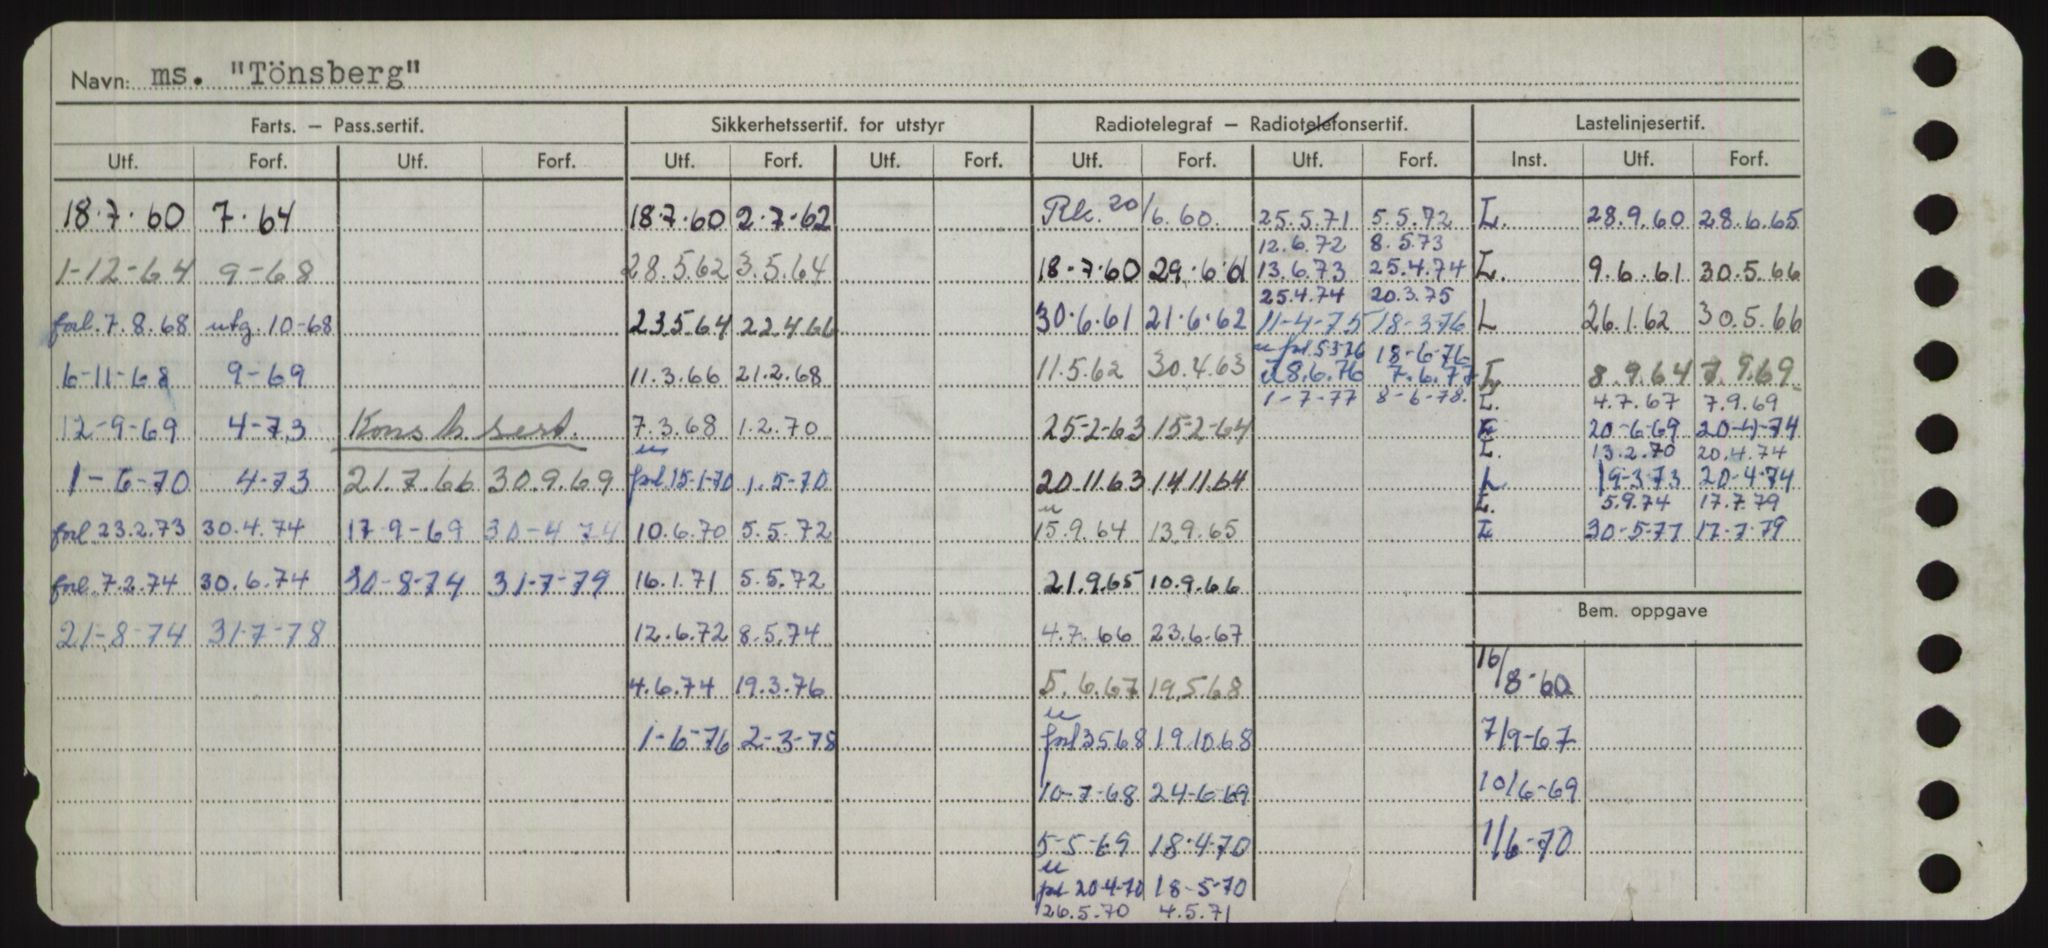 Navn: ms. "Tönsberg"
Farts. – Pass.sertif. Sikkerhetssertif. for utstyr Radiotelegraf – Radiotelefonsertif. Lastelinjesertif.
Utf. Forf. Utf. Forf. Utf. Forf. Utf. Forf. Utf. Forf. Utf. Forf. Inst. Utf. Forf.
18.7.60 7.64 18.7.60 2.7.62 Rk. 20/6.60. 25.5.71 5.5.72 L. 28.9.60 28.6.65
12.6.72 8.5.73
1-12-64 9-68 28.5.62 3.5.64 18.7.60 29.6.61 13.6.73 25.4.74 L. 9.6.61 30.5.66
25.4.74 20.3.75
forl. 7.8.68 utg. 10-68 23.5.64 22.4.66 30.6.61 21.6.62 11-4-75 18-3-76 L 26.1.62 30.5.66
u forl 5-3-76 18-6-76
6-11-68 9-69 11.3.66 21.2.68 11.5.62 30.4.63 8.6.76 7.6.77 L 8.9.64 7.9.69
1-7-77 8-6-78. L. 4.7.67 7.9.69
12-9-69 4-73 Konstr. sert. 7.3.68 1.2.70 25-2-63 15-2-64 L 20-6-69 20-4-74
u L. 13.2.70 20.4.74
1-6-70 4-73 21.7.66 30.9.69 forl 15-1-70 1.5-70 20.11.63 14.11.64 L 19-3-73 20-4-74
u L. 5.9.74 17.7.79
forl. 23.2.73 30.4.74 17-9-69 30-4-74 10.6.70 5.5.72 15.9.64 13.9.65 L 30-5-77 17-7-79
forl. 7.2.74 30.6.74 30-8-74 31-7-79 16.1.71 5.5.72 21.9.65 10.9.66
Bem. oppgave
21-8-74 31-7-78 12.6.72 8.5.74 4.7.66 23.6.67
4.6.74 19.3.76 5.6.67 19.5.68 16/8-60
u
1-6-76 2-3-78 forl 3.5.68 19.10.68 7/9-67
10-7-68 24-6-69 10/6-69
5-5-69 18-4-70 1/6-70
u
forl 20-4-70 18-5-70
26.5.70 4.5.71